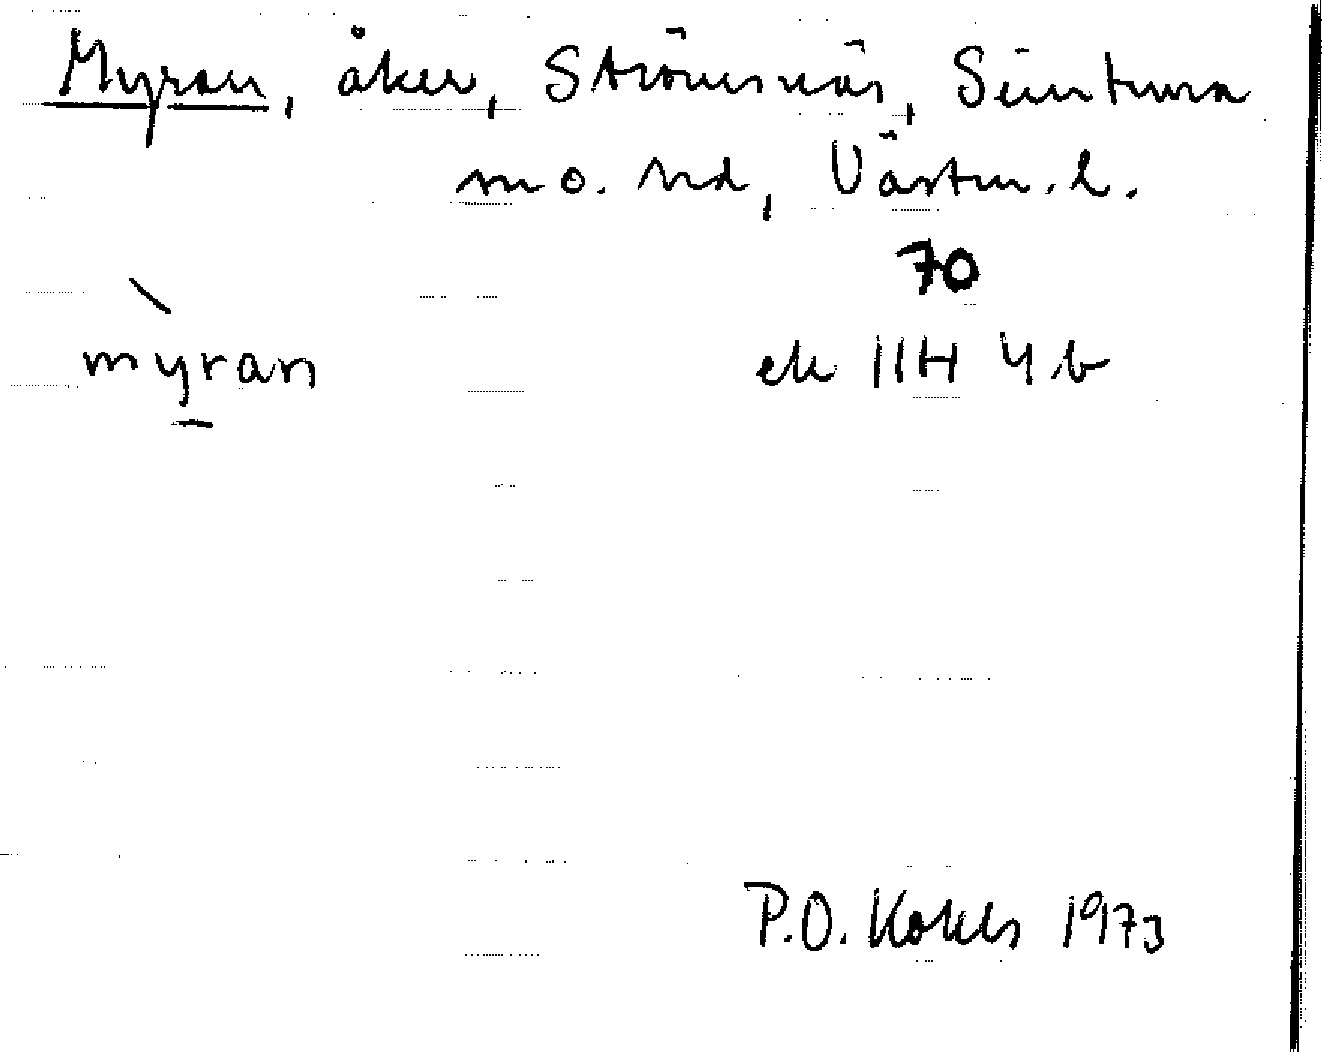 Myran, åker, Strömsnäs, Simtuna
sn o. hd, Västm. l.
70
myran ek 11H 4b
P.O. Kokls 1973